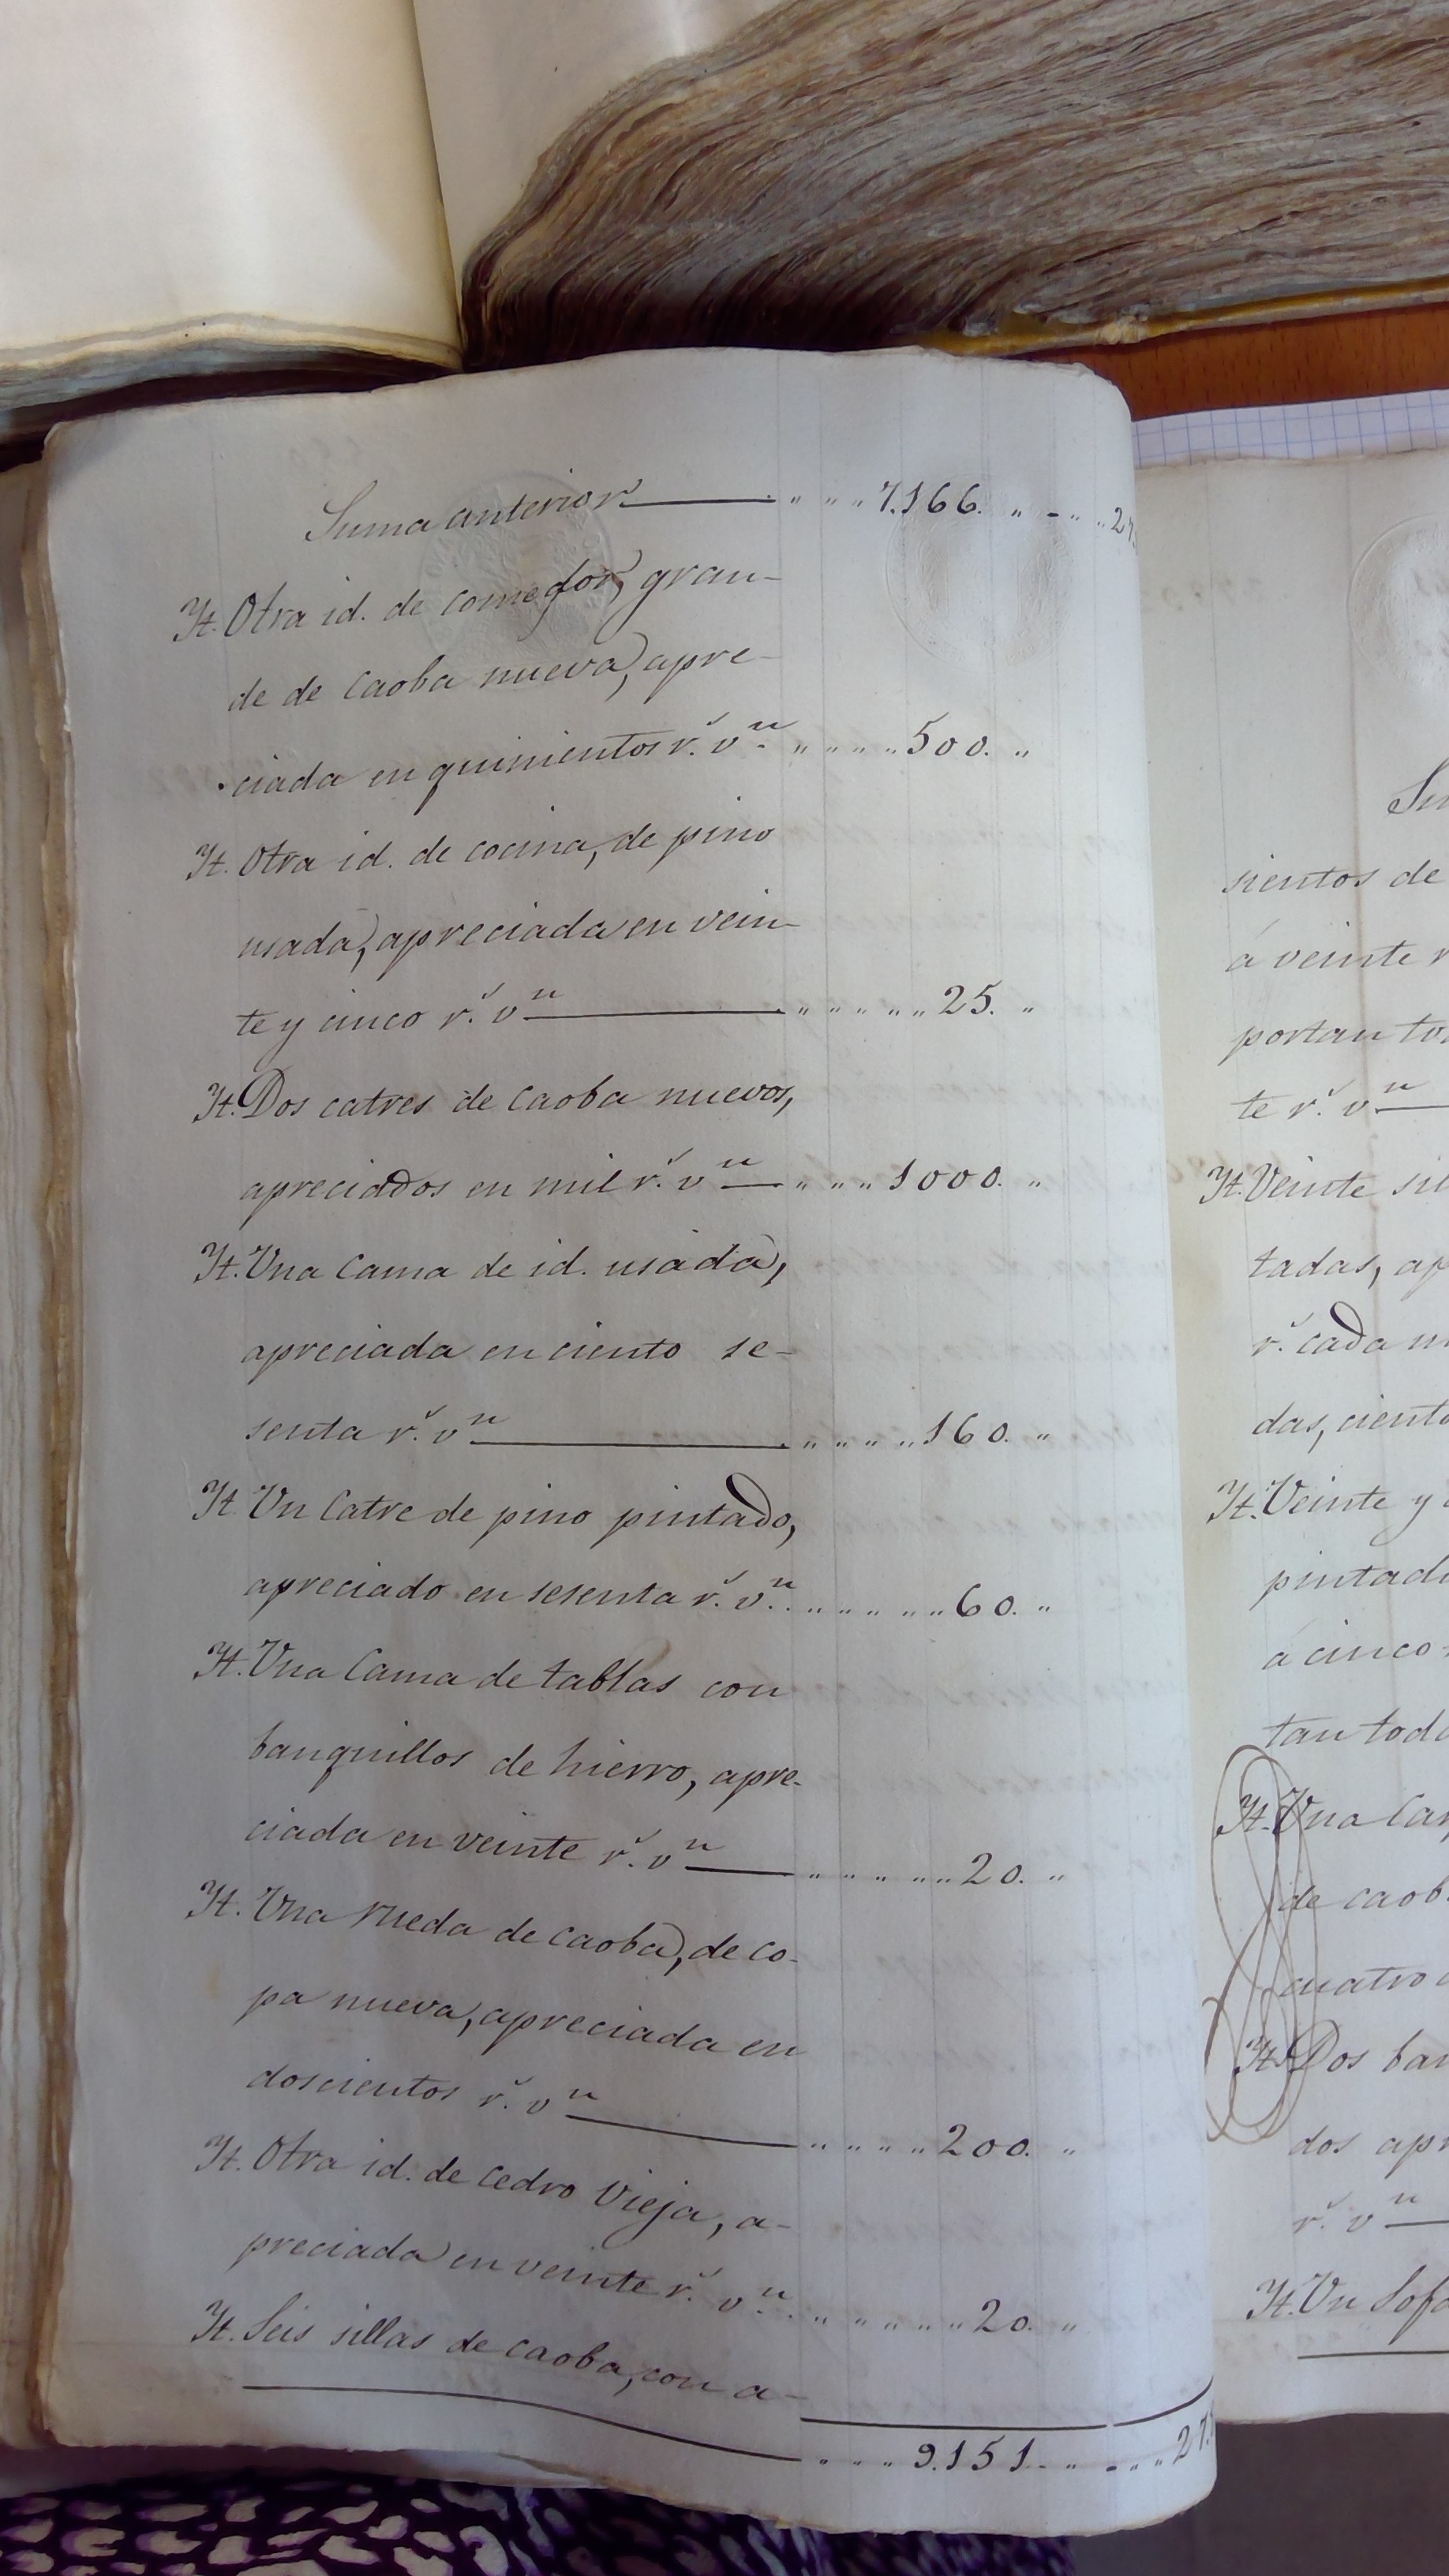 Suma anterior " " " 7.166. " - " " 27
It. Otra id. de comedor, gran-
de de caoba nueva, apre-
ciada en quinientos r.ˢ v.ⁿ " " " " 500. "
It. Otra id. de cocina, de pino
usada, apreciada en vein-
te y cinco r.ˢ vⁿ " " " " " 25. "
It. Dos catres de caoba nuevos,
apreciados en mil r.ˢ vⁿ " " " 1000. "
It. Una cama de id. usada,
apreciada en ciento se-
senta r.ˢ vⁿ " " " " 160. "
It. Un Catre de pino pintado,
apreciado en sesenta r.ˢ v.ⁿ " " " " " 60. "
It. Una Cama de tablas con
banquillos de hierro, apre-
ciada en veinte r.ˢ vⁿ " " " " " 20. "
It. Una rueda de caoba, de co-
pa nueva, apreciada en
doscientos r.ˢ vⁿ " " " " 200. "
It. Otra id. de cedro vieja, a-
preciada en veinte r.ˢ v.ⁿ " " " " " 20. "
It. Seis sillas de caoba, con a-
" " " 9.151. " " " " 27
Su
sientos de
á veinte r
portan to
te r.ˢ vⁿ
It. Veinte si
tadas, ap
r.ˢ cada u
das, ciento
It. Veinte y
pintad
á cinco
tan tod
It. Una Ca
de caob
cuatro
It. Dos ban
dos apr
r.ˢ vⁿ
It. Un Sofa